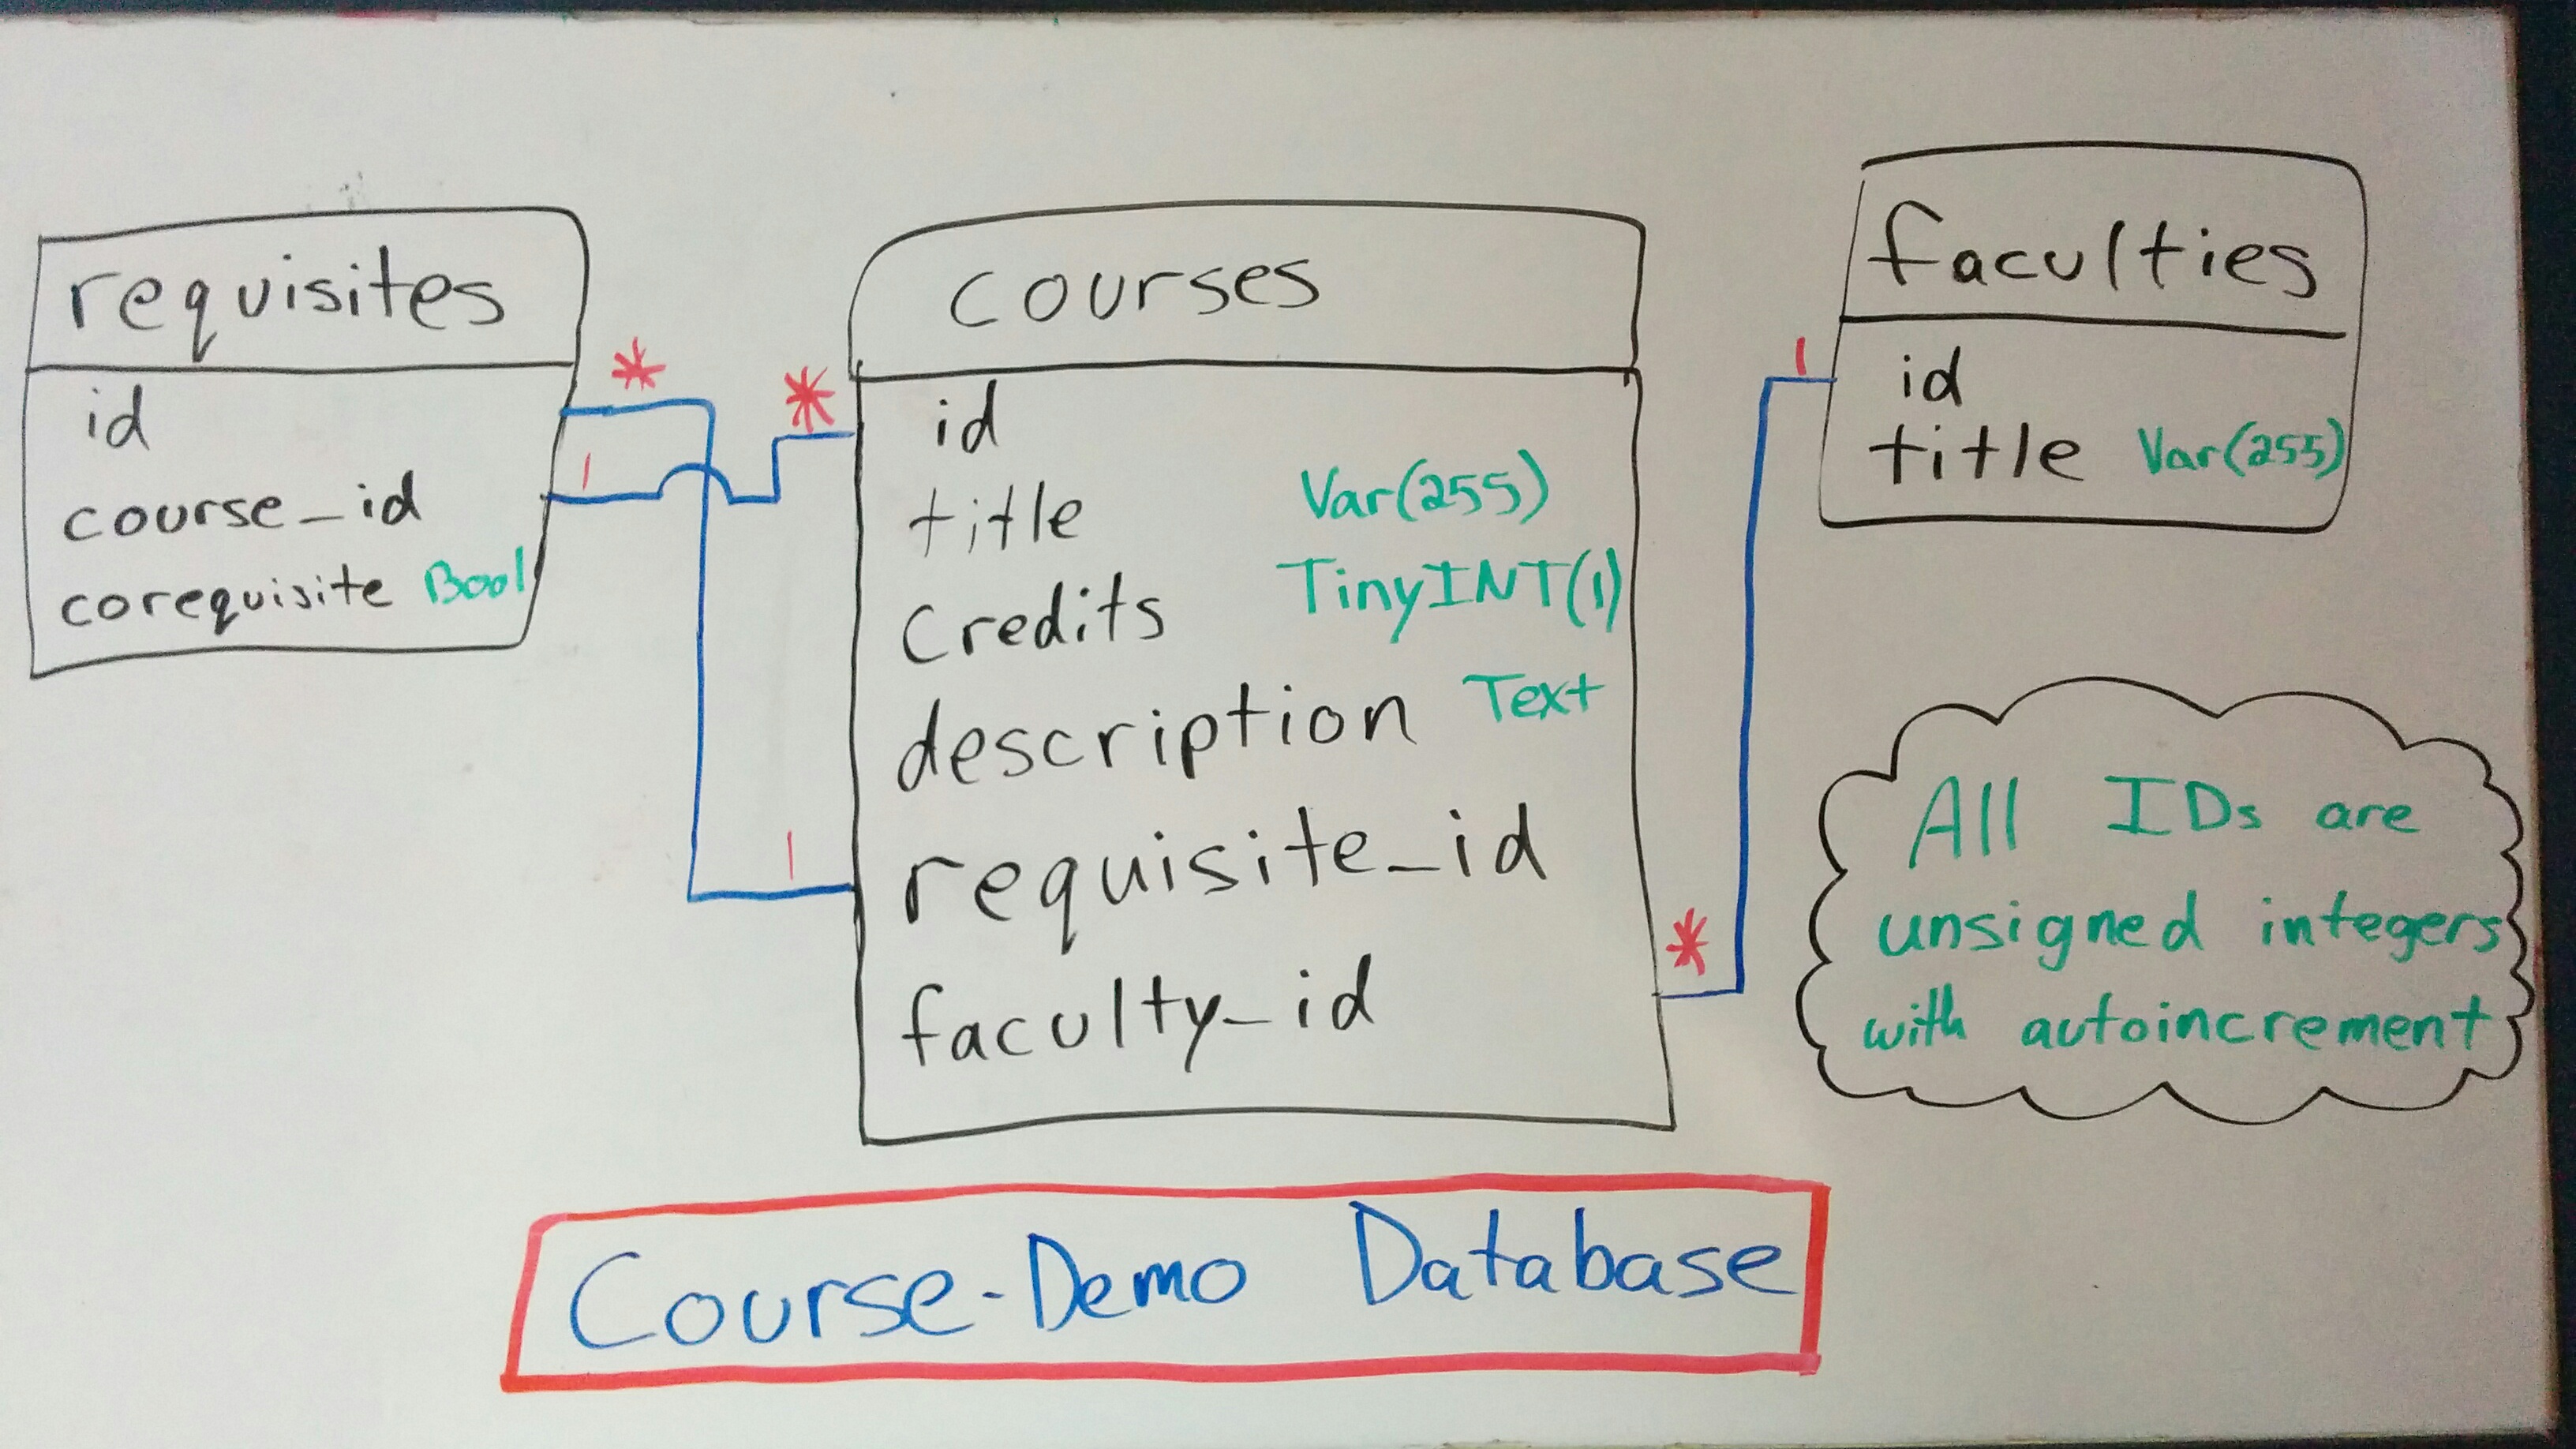 requisites
id
course_id
corequisite Bool
*
1
*
1
courses
id
title Var(255)
Credits TinyINT(1)
description Text
requisite_id
faculty_id
*
1
faculties
id
title Var(255)
All IDs are
unsigned integers
with autoincrement
Course-Demo Database